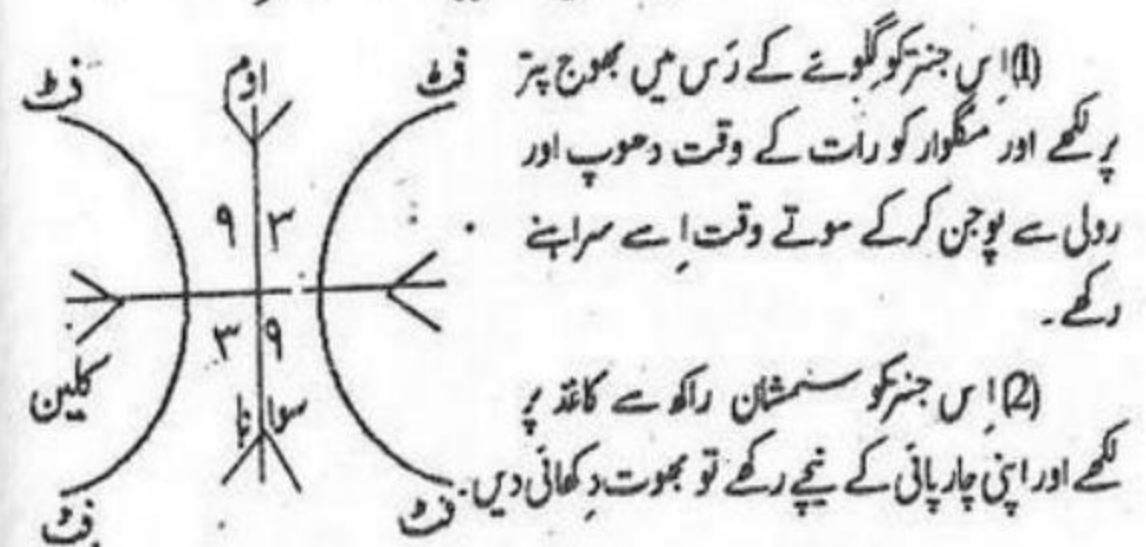 (1) اِس جنتر کو گلوئے کے رَس میں بھوج پتر
پر لکھے اور منگلوار کو رات کے وقت دھوپ اور
رولی سے پوجن کرکے سوتے وقت اِسے سراہنے
رکھے۔
(2) اِس جنتر کو سمشان راکھ سے کاغذ پر
لکھے اور اپنی چارپائی کے نیچے رکھے تو بھوت دِکھائی دیں۔
فٹ
اوم
فٹ
۹ ۳
۳ ۹
کلین
سوا ہا
فٹ
فٹ